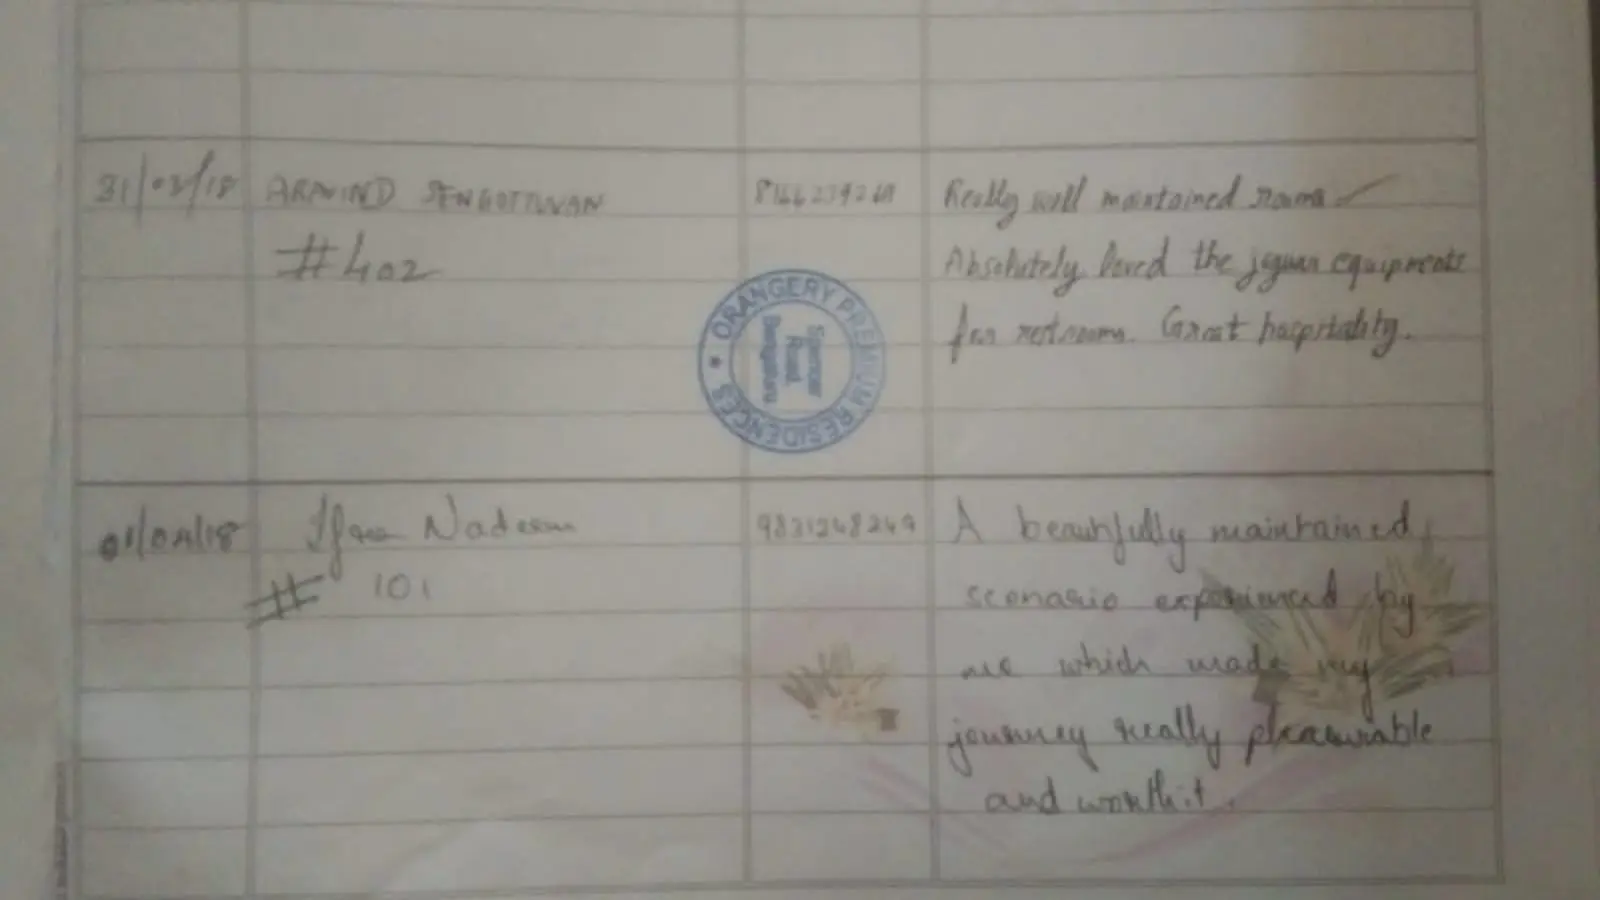 31/03/18 ARAVIND SENGOTTUVAN Really well maintained rooms
#402 Absolutely loved the jaguar equipments
for restrooms. Great hospitality.
ORANGERY PREMIUM RESIDENCES
Spencer
Road,
Bangalore
01/04/18 Nadeem 9831248249 A beautifully maintained
# 101 scenario experienced by
me which made my
journey really pleasurable
and worth it.